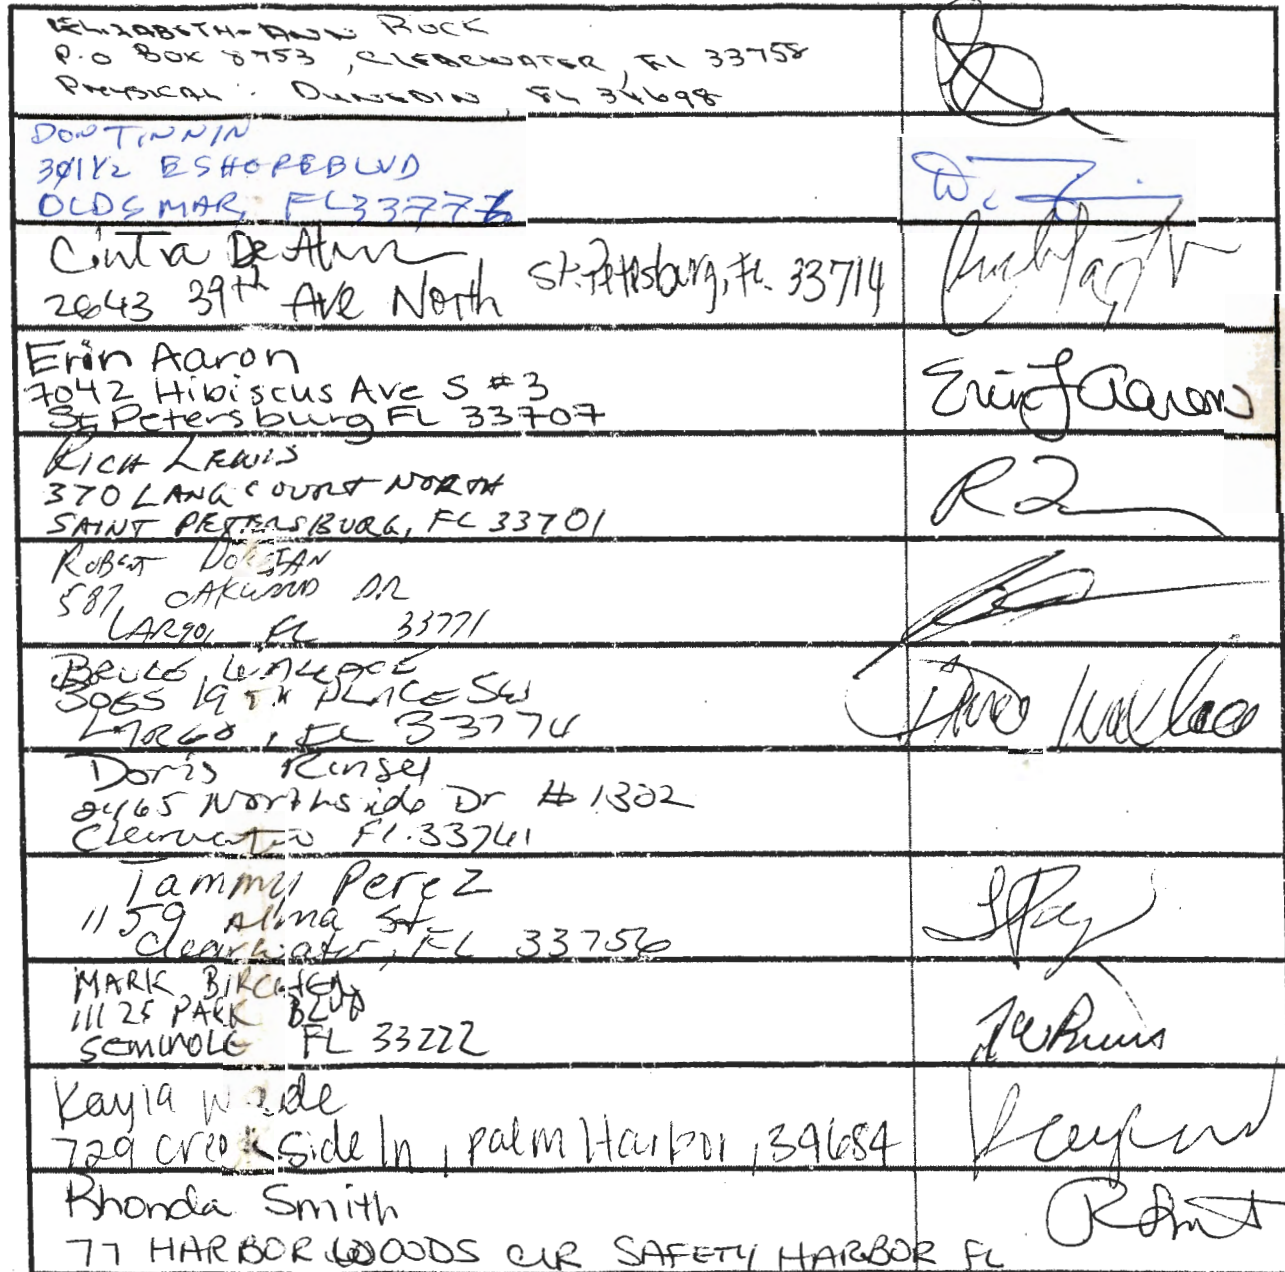 ELIZABETH-ANN ROCK
P.O BOX 8753, CLEARWATER, FL 33758
PHYSICAL: DUNEDIN, FL 34698
DON TINNIN
301 1/2 E SHORE BLVD
OLDSMAR, FL 33777
Cintra De
2643 39th Ave North St. Petersburg, FL. 33714
Erin Aaron
7042 Hibiscus Ave S #3
St Petersburg FL 33707
Erin J Aaron
RICH LEWIS
370 LANG COURT NORTH
SAINT PETERSBURG, FL 33701
ROBERT
587 OAKWOOD DR
LARGO, FL 33771
BRUCE WALLACE
3065 19TH PLACE SW
LARGO, FL 33774
Wallace
Doris Kinsel
2465 Northside Dr #1302
Clearwater Fl. 33761
Tammy Perez
1159 Alma St
Clearwater, FL 33756
MARK
11125 PARK BLVD
SEMINOLE FL 33222
Kayla Wade
729 creekside ln, palm Harbor, 39684
Rhonda Smith
77 HARBOR WOODS CIR SAFETY HARBOR FL